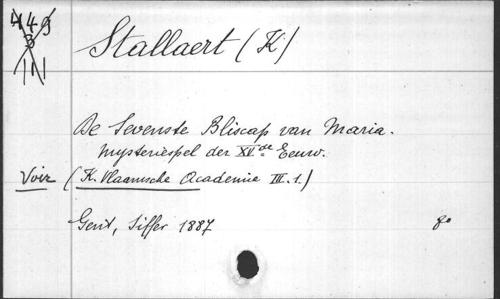 449
B
IN
Stallaert (K)
De Sevenste Bliscap van Maria.
Mysteriespel der XVde Eeuw.
Voir (K. Vlaamsche Academie III. 1.)
Gent, Siffer 1887 8o